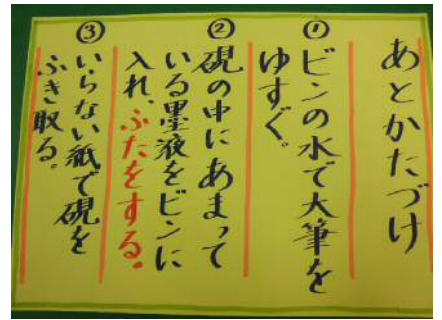 あとかたづけ
①ビンの水で大筆を
ゆすぐ。
②硯の中にあまって
いる墨液をビンに
入れ、ふたをする。
③いらない紙で硯を
ふき取る。